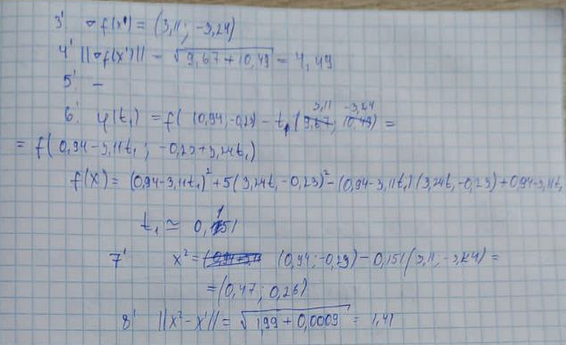 3' ∇f(x¹) = (3,11; -3,24)
4' ||∇f(x¹)|| = √9,67+10,49 = 4,49
5' —
6' φ(t₁) = f( (0,94; -0,23) - t₁ (3,11; -3,24) =
= f(0,94-3,11t₁; -0,23+3,24t₁)
f(x) = (0,94-3,11t₁)² + 5(3,24t₁-0,23)² - (0,94-3,11t₁)(3,24t₁-0,23) + 0,94-3,11t₁
t₁ ≃ 0,151
7' x² = (0,94; -0,23) - 0,151(3,11; -3,24) =
= (0,47; 0,26)
8' ||x²-x¹|| = √1,99+0,0009 = 1,41